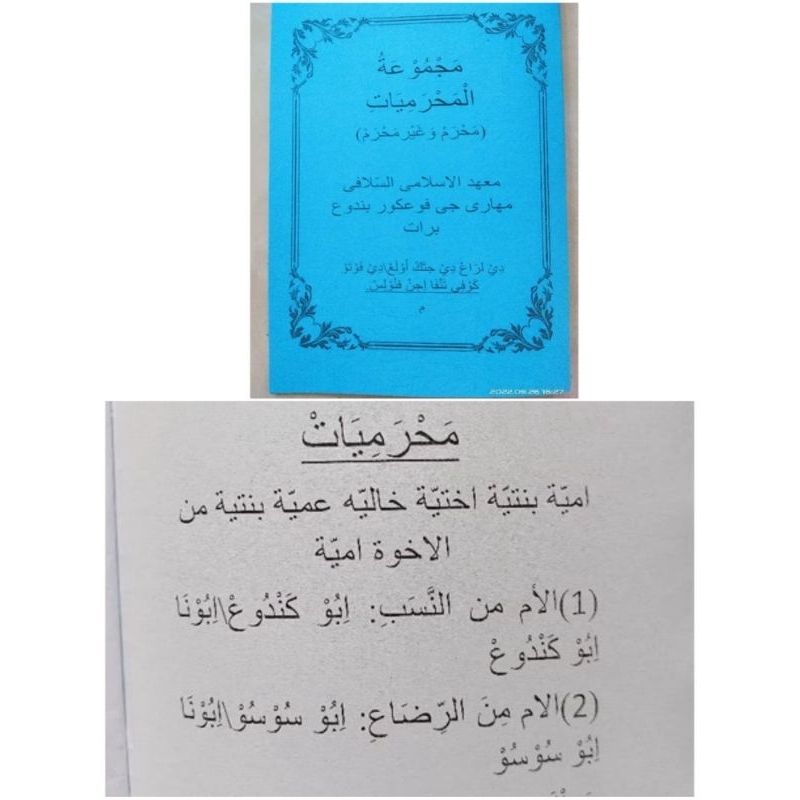 مَجْمُوْعَةُ
الْمَحْرَمِيَاتِ
(مَحْرَمْ وَ غَيْر مَحْرَمْ)
معهد الاسلامى السّلافى
مهارى جى فوعكور بندوع
برات
دِيْ لَرَاعْ دِيْ جِتَكْ اُوْلَعْ\دِيْ فَوْتَوْ
كَوْفِي تَنْفَا اِجِنْ فَنُوْلِسْ.
م
2022.09.26 16:27
مَحْرَمِيَاتْ
اميّة بنتيّة اختيّة خاليّه عميّة بنتية من
الاخوة اميّة
(1)الأم من النَّسَبِ: اِبُوْ كَنْدُوعْ\اِبُوْنَا
اِبُوْ كَنْدُوعْ
(2)الام مِنَ الرِّضَاعِ: اِبُوْ سُوْسُوْ\اِبُوْنَا
اِبُوْ سُوْسُوْ